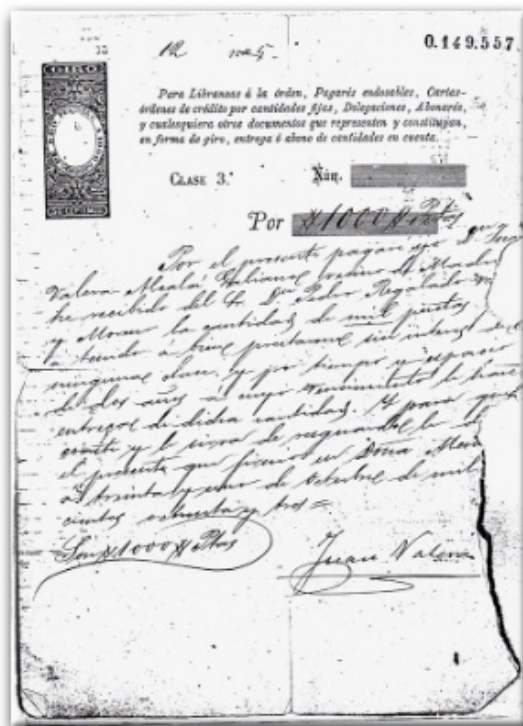 0.149.557
GIRO
Para Libranzas á la órden, Pagarés endosables, Cartas-
órdenes de crédito por cantidades fijas, Delegaciones, Abonarés,
y cualesquiera otros documentos que representen y constituyan,
en forma de giro, entrega ó abono de cantidades en cuenta.
CLASE 3.ª Núm.
Por #1000# Ptas
Por el presente pagaré yo Dn Juan
Valera Alcalá Galiano vecino de
he recibido del Sr Dn Pedro Regalado
y Moreno la cantidad de mil pesetas
tenido á bien prestarme sin interes de
ninguna clase y por tiempo y espacio
de dos años a cuyo vencimiento le haré
entrega de dicha cantidad. Y para que
conste y le sirva de resguardo le doy
el presente que firmo en Doña
a treinta y uno de Octubre de mil
cientos ochenta y tres =
Son #1000# Ptas
Juan Valera